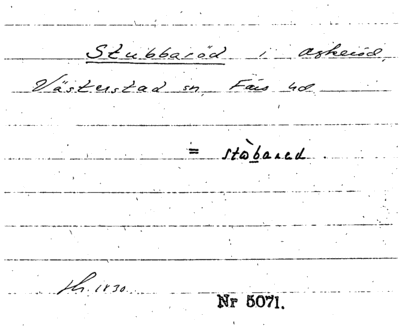 Stubbaröd i Askeröd,
Västerstad sn Färs hd
= stòbared.
1830
Nr 5071.